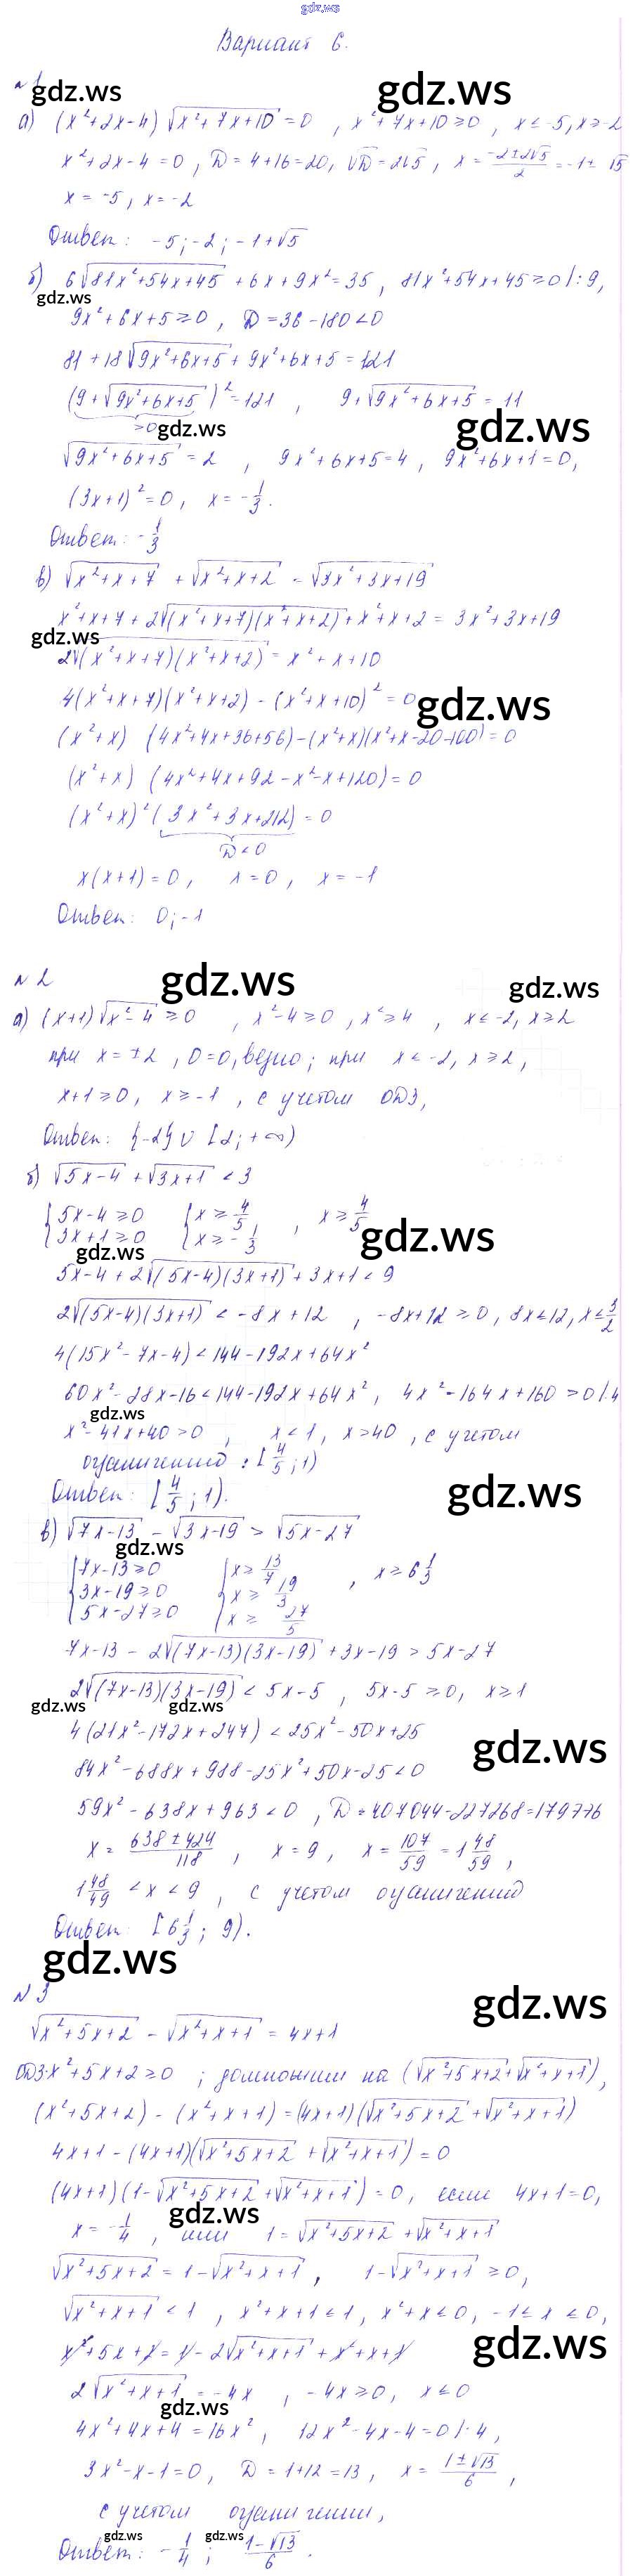 gdz.ws
Вариант 6.
№ 1
gdz.ws
gdz.ws
а) (x²+2x-4) √(x²+7x+10) = 0 , x²+7x+10 ≥ 0 , x ≤ -5, x ≥ -2
x²+2x-4=0, D=4+16=20, √D=2√5, x = (-2±2√5)/2 = -1±√5
x = -5, x = -2
Ответ: -5; -2; -1+√5
б) 6√(81x²+54x+45) + 6x + 9x² = 35, 81x²+54x+45 ≥ 0 |:9,
gdz.ws
9x²+6x+5 ≥ 0, D = 36-180 < 0
81+18√(9x²+6x+5) + 9x²+6x+5 = 121
(9+√(9x²+6x+5))² = 121 , 9+√(9x²+6x+5) = 11
>0
gdz.ws
gdz.ws
√(9x²+6x+5) = 2 , 9x²+6x+5=4 , 9x²+6x+1=0,
(3x+1)²=0, x = -1/3.
Ответ: -1/3
в) √(x²+x+7) + √(x²+x+2) = √(3x²+3x+19)
x²+x+7+2√((x²+x+7)(x²+x+2)) + x²+x+2 = 3x²+3x+19
gdz.ws
2√((x²+x+7)(x²+x+2)) = x²+x+10
4(x²+x+7)(x²+x+2) - (x²+x+10)² = 0
gdz.ws
(x²+x) (4x²+4x+36+56) - (x²+x)(x²+x-20-100) = 0
(x²+x) (4x²+4x+92-x²-x+120) = 0
(x²+x)²(3x²+3x+212) = 0
D<0
x(x+1)=0, x=0, x=-1
Ответ: 0; -1
№ 2
gdz.ws
gdz.ws
а) (x+1)√(x²-4) ≥ 0 , x²-4 ≥ 0, x² ≥ 4 , x ≤ -2, x ≥ 2
при x = ±2, 0=0, верно; при x < -2, x ≥ 2,
x+1 ≥ 0, x ≥ -1 , с учетом ОДЗ,
Ответ: {-2} ∪ [2; +∞)
б) √(5x-4) + √(3x+1) < 3
{5x-4 ≥ 0 {x ≥ 4/5 , x ≥ 4/5
{3x+1 ≥ 0 {x ≥ -1/3
gdz.ws
gdz.ws
5x-4+2√((5x-4)(3x+1)) + 3x+1 < 9
2√((5x-4)(3x+1)) < -8x+12 , -8x+12 ≥ 0, 8x ≤ 12, x ≤ 3/2
4(15x²-7x-4) < 144-192x+64x²
60x²-28x-16 < 144-192x+64x², 4x²-164x+160 > 0 |:4
gdz.ws
x²-41x+40 > 0 , x < 1, x > 40 , с учетом
ограничений: [4/5; 1)
Ответ: [4/5; 1).
gdz.ws
в) √(7x-13) - √(3x-19) > √(5x-27)
gdz.ws
{7x-13 ≥ 0 {x ≥ 13/7
{3x-19 ≥ 0 {x ≥ 19/3 , x ≥ 6 1/3
{5x-27 ≥ 0 {x ≥ 27/5
7x-13 - 2√((7x-13)(3x-19)) + 3x-19 > 5x-27
2√((7x-13)(3x-19)) < 5x-5 , 5x-5 ≥ 0, x ≥ 1
gdz.ws
gdz.ws
4(21x²-172x+247) < 25x²-50x+25
gdz.ws
84x²-688x+988-25x²+50x-25 < 0
59x²-638x+963 < 0 , D = 407044-227268=179776
x = (638±424)/118 , x = 9, x = 107/59 = 1 48/59,
1 48/49 < x < 9 , с учетом ограничений
Ответ: [6 1/3; 9).
gdz.ws
№ 3
gdz.ws
√(x²+5x+2) - √(x²+x+1) = 4x+1
ОДЗ: x²+5x+2 ≥ 0 ; домножим на (√(x²+5x+2)+√(x²+x+1)),
(x²+5x+2) - (x²+x+1) = (4x+1)(√(x²+5x+2) + √(x²+x+1))
4x+1 - (4x+1)(√(x²+5x+2) + √(x²+x+1)) = 0
(4x+1)(1-√(x²+5x+2) + √(x²+x+1)) = 0, если 4x+1=0,
gdz.ws
x = -1/4 , или 1 = √(x²+5x+2) + √(x²+x+1)
√(x²+5x+2) = 1-√(x²+x+1) , 1-√(x²+x+1) ≥ 0,
√(x²+x+1) ≤ 1 , x²+x+1 ≤ 1, x²+x ≤ 0, -1 ≤ x ≤ 0,
gdz.ws
x²+5x+2 = 1-2√(x²+x+1) + x²+x+1
2√(x²+x+1) = -4x , -4x ≥ 0, x ≤ 0
gdz.ws
4x²+4x+4 = 16x², 12x²-4x-4=0 |:4,
3x²-x-1=0, D = 1+12=13, x = (1±√13)/6,
с учетом ограничений,
gdz.ws
gdz.ws
Ответ: -1/4; (1-√13)/6.